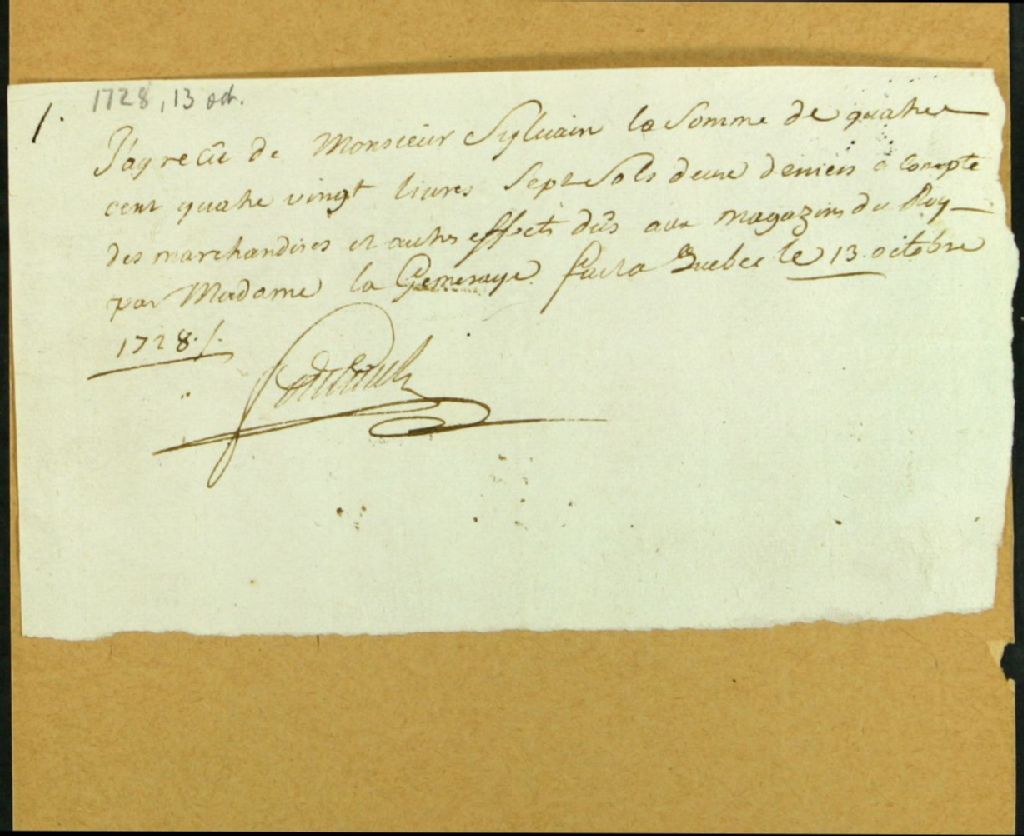 1. 1728, 13 oct.
J'ay recû de Monsieur Sylvain la Somme de quatre
cent quatre vingt livres Sept Sols deux deniers a compte
des marchandises et autres effects dûs aux magazins du Roy
par Madame la Gemeraye. fait a Quebec le 13 octobre
1728./.